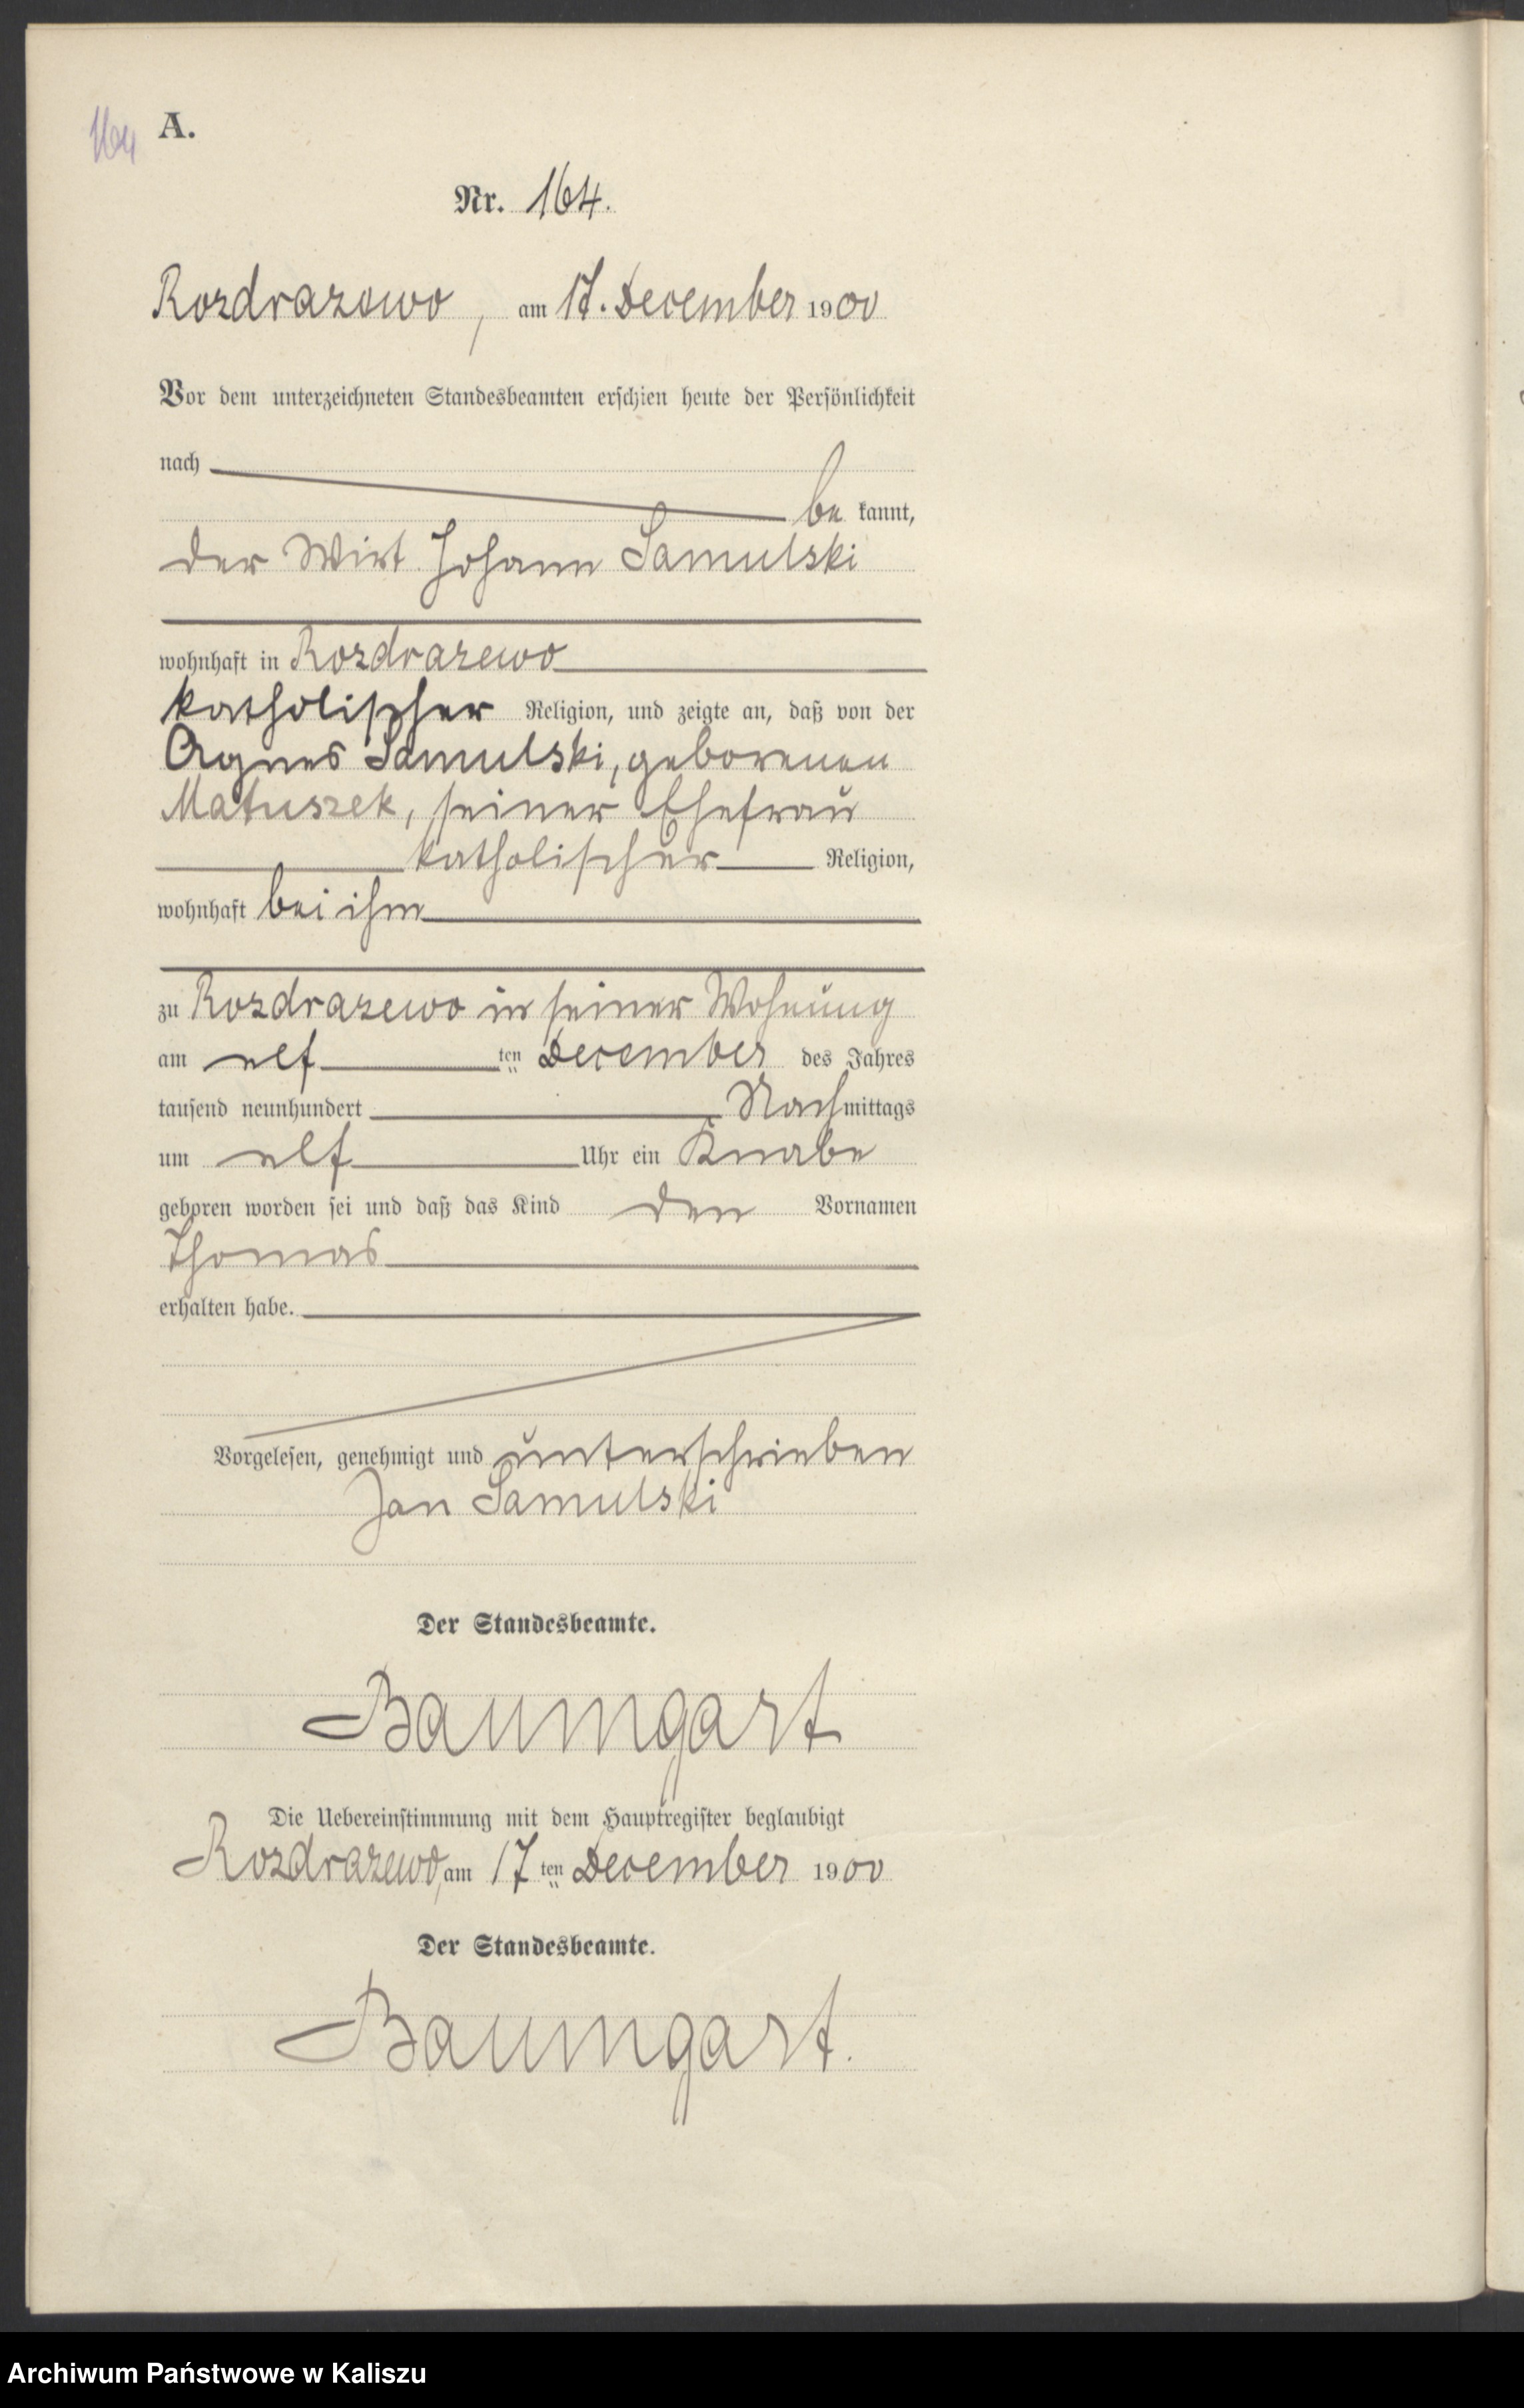 164 A.
Nr. 164.
Rozdrazewo, am 17. December 1900
Vor dem unterzeichneten Standesbeamten erschien heute der Persönlichkeit
nach
be kannt,
der Wirt Johann Samulski
wohnhaft in Rozdrazewo
katholischer Religion, und zeigte an, daß von der
Agnes Samulski, geborenen
Matuszek, seiner Ehefrau
katholischer Religion,
wohnhaft bei ihm
zu Rozdrazewo in seiner Wohnung
am elf ten December des Jahres
tausend neunhundert Nachmittags
um elf Uhr ein Knabe
geboren worden sei und daß das Kind den Vornamen
Thomas
erhalten habe.
Vorgelesen, genehmigt und unterschrieben
Jan Samulski
Der Standesbeamte.
Baumgart
Die Uebereinstimmung mit dem Hauptregister beglaubigt
Rozdrazewo, am 17 ten December 1900
Der Standesbeamte.
Baumgart.
Archiwum Państwowe w Kaliszu